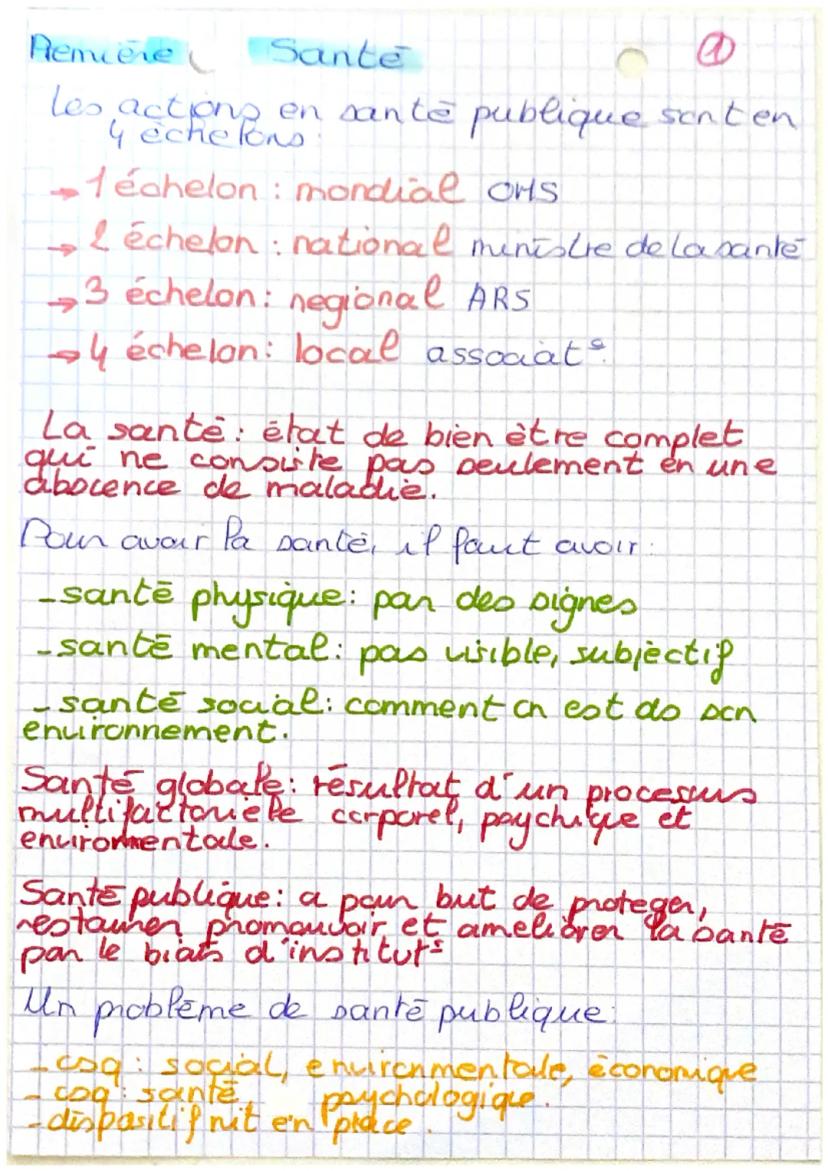 Première Santé ①
Les actions en santé publique sont en
4 échelons:
→ 1 échelon : mondial OMS
→ 2 échelon : national ministre de la santé
→ 3 échelon : regional ARS
→ 4 échelon : local associatᵒ.
La santé : état de bien être complet
qui ne consiste pas seulement en une
abscence de maladie.
Pour avoir la santé, il faut avoir :
- santé physique : par des signes
- santé mental : pas visible, subjèctif
- santé social : comment on est ds son
environnement.
Santé globale : résultat d'un procesus
multifactorielle corporel, psychique et
environmentale.
Santé publique : a pour but de proteger,
restaurer promouvoir et ameliorer la santé
par le biais d'institutˢ
Un problème de santé publique :
- csq : social, environmentale, économique
- csq : santé, psychologique.
- dispositif mit en place.